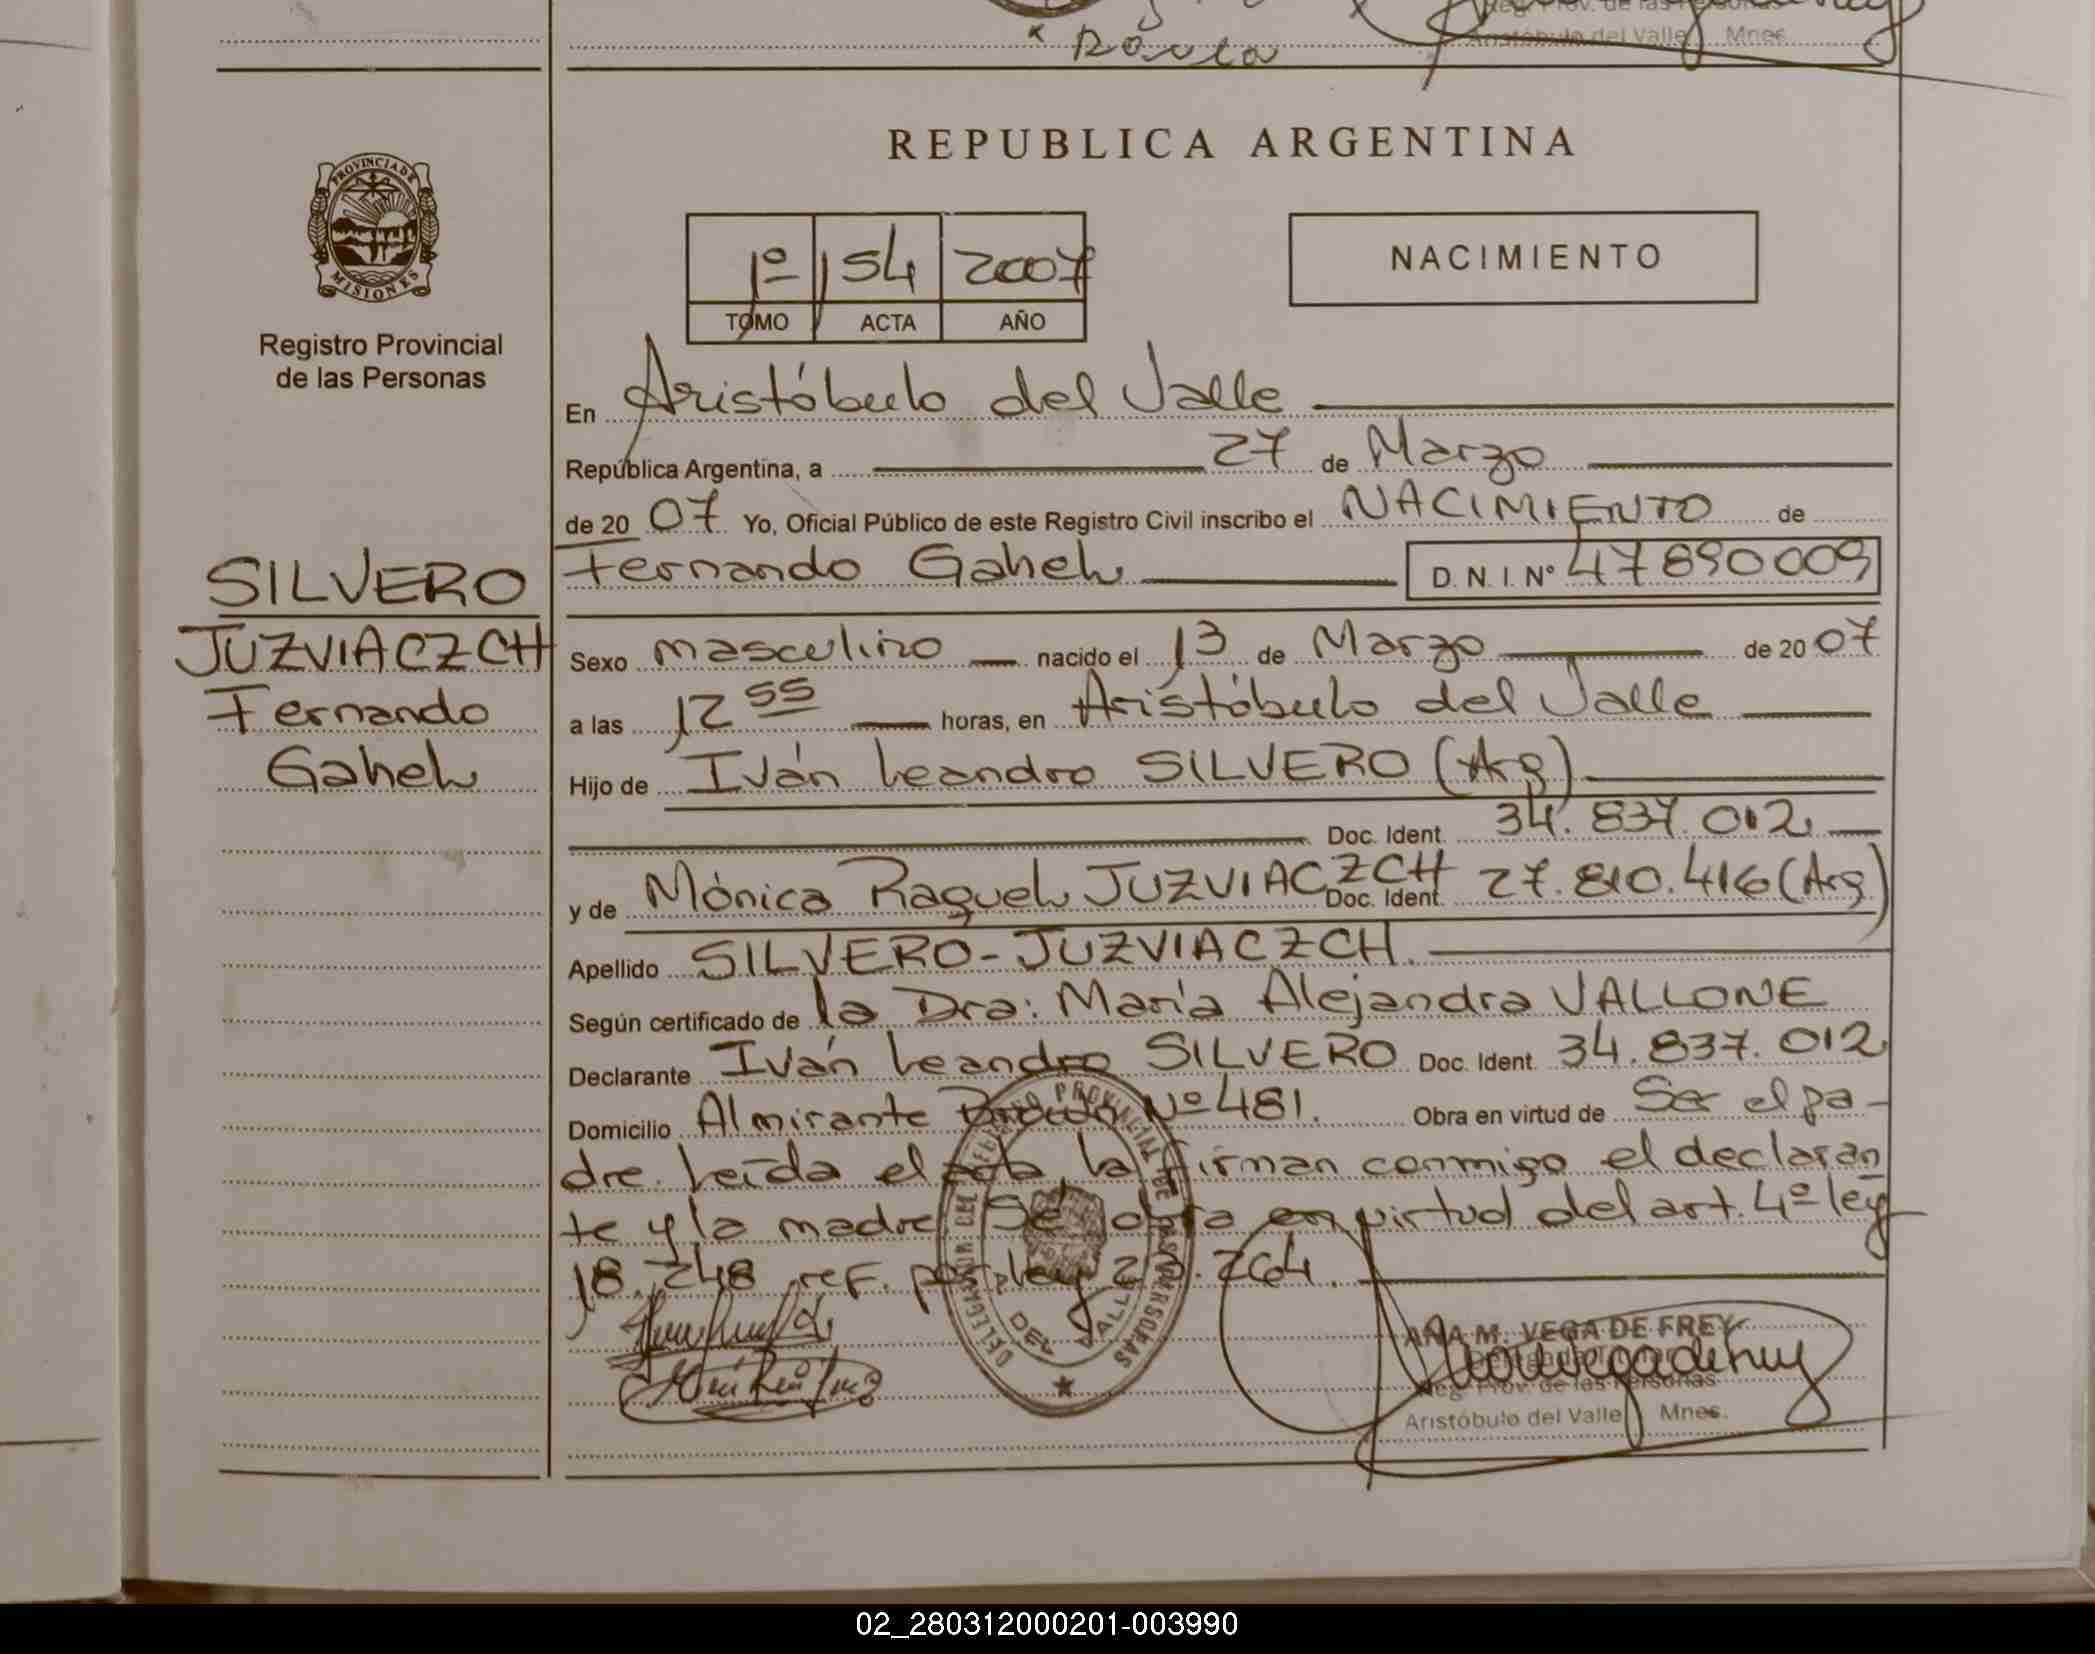 Reg. Prov. de las Personas
Aristóbulo del Valle Mnes.
REPUBLICA ARGENTINA
PROVINCIA DE
MISIONES
Registro Provincial
de las Personas
1º 154 2007
TOMO ACTA AÑO
NACIMIENTO
En Aristóbulo del Valle
República Argentina, a 27 de Marzo
de 20 07 Yo, Oficial Público de este Registro Civil inscribo el NACIMIENTO de
Fernando Gahel D. N. I. Nº 47890009
SILVERO
JUZVIACZCH
Fernando
Gahel
Sexo masculino nacido el 13 de Marzo de 20 07
a las 12 55 horas, en Aristóbulo del Valle
Hijo de Iván Leandro SILVERO (Arg)
Doc. Ident. 34.837.012
y de Mónica Raquel JUZVIACZCH Doc. Ident. 27.810.416 (Arg)
Apellido SILVERO-JUZVIACZCH.
Según certificado de la Dra: María Alejandra VALLONE
Declarante Iván Leandro SILVERO Doc. Ident. 34.837.012
Domicilio Almirante Brown Nº 481. Obra en virtud de Ser el pa-
dre. Leída el acta, la firman conmigo el declaran
te y la madre. Se obra en virtud del art. 4º ley
18.248 ref. por ley 20.264.
DELEGACION DEL REGISTRO PROVINCIAL DE LAS PERSONAS
DEL VALLE
ANA M. VEGA DE FREY
Delegada Titular
Reg. Prov. de las Personas
Aristóbulo del Valle Mnes.
02_280312000201-003990